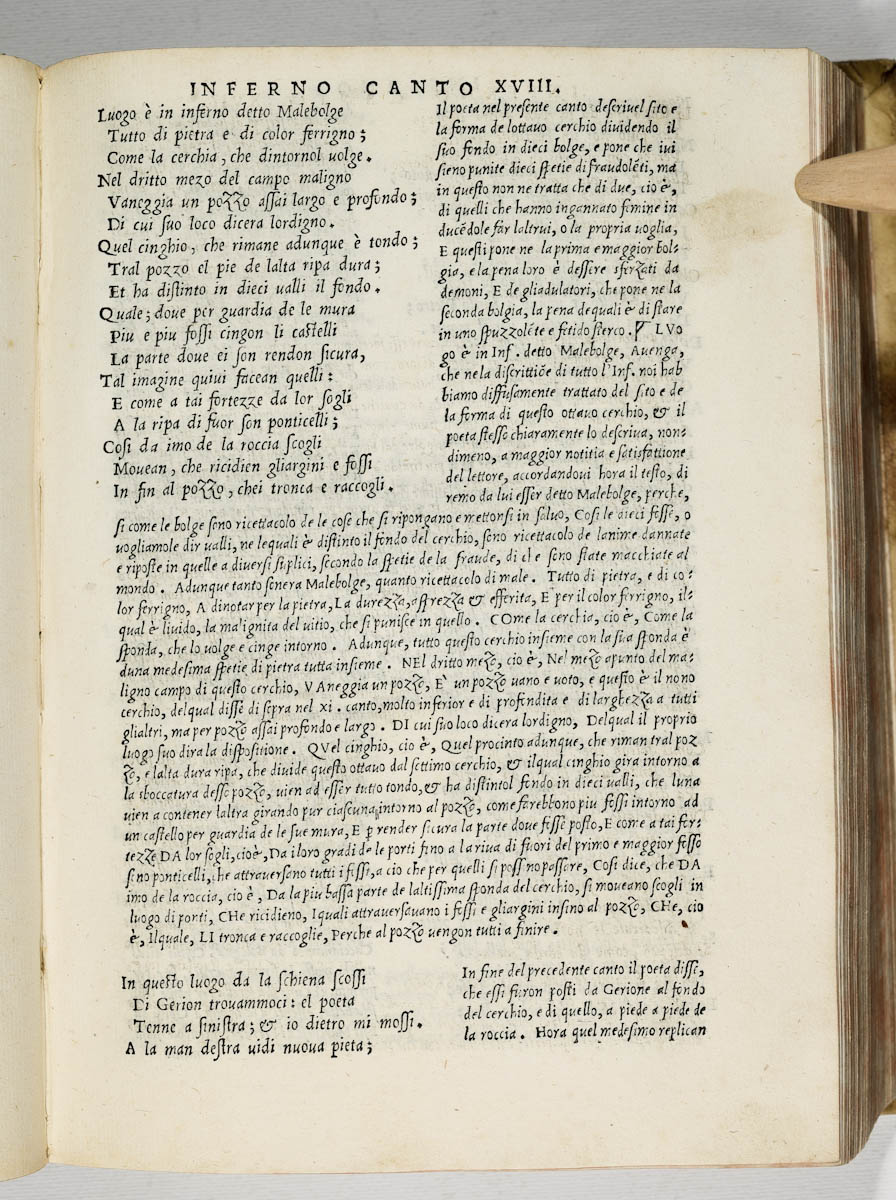 INFERNO CANTO XVIII.
Luogo è in inferno detto Malebolge
Tutto di pietra e di color ferrigno;
Come la cerchia, che dintornol uolge.
Nel dritto mezo del campo maligno
Vaneggia un pozzo assai largo e profondo;
Di cui suo loco dicera lordigno.
Quel cinghio, che rimane adunque è tondo;
Tral pozzo el pie de lalta ripa dura;
Et ha distinto in dieci ualli il fondo.
Quale; doue per guardia de le mura
Piu e piu fossi cingon li castelli
La parte doue ei son rendon sicura,
Tal imagine quiui facean quelli:
E come a tai fortezze da lor sogli
A la ripa di fuor son ponticelli;
Cosi da imo de la roccia scogli
Mouean, che ricidien gliargini e fossi
In fin al pozzo, chei tronca e raccogli.
Il poeta nel presente canto descriuel sito e
la forma de lottauo cerchio diuidendo il
suo fondo in dieci bolge, e pone che iui
sieno punite dieci spetie di fraudolẽti, ma
in questo non ne tratta che di due, cio è,
di quelli che hanno ingannato femine in
ducẽdole far laltrui, o la propria uoglia,
E questi pone ne la prima e maggior bol-
gia, e la pena loro è dessere sferzati da
demoni, E de gliadulatori, che pone ne la
seconda bolgia, la pena de quali è di stare
in uno spuzzolẽte e fetido sterco. LVo
go è in Inf. detto Malebolge, Auenga,
che ne la discrittiõe di tutto l'Inf. noi hab
biamo diffusamente trattato del sito e de
la forma di questo ottauo cerchio, & il
poeta stesso chiaramente lo descriua, non-
dimeno, a maggior notitia e satisfattione
del lettore, accordandoui hora il testo, di
remo da lui esser detto Malebolge, perche,
si come le bolge sono ricettacolo de le cose che si ripongano e mettonsi in saluo, Cosi le dieci fosse, o
uogliamole dir ualli, ne lequali è distinto il fondo del cerchio, sono ricettacolo de lanime dannate
e riposte in quelle a diuersi suplici, secondo la spetie de la fraude, di che sono state macchiate al
mondo. Adunque tanto sonera Malebolge, quanto ricettacolo di male. Tutto di pietra, e di co-
lor ferrigno, A dinotar per la pietra, La durezza, asprezza & efferita, E per il color ferrigno, il-
qual è liuido, la malignita del uitio, che si punisce in quello. COme la cerchia, cio è, Come la
sponda, che lo uolge e cinge intorno. Adunque, tutto questo cerchio insieme con la sua sponda è
duna medesima spetie di pietra tutta insieme. NEl dritto mezzo, cio è, Nel mezzo apunto del ma-
ligno campo di questo cerchio, VAneggia un pozzo, E' un pozzo uano e uoto, e questo è il nono
cerchio, delqual disse di sopra nel xi. canto, molto inferior e di profondita e di larghezza a tutti
glialtri, ma per pozzo assai profondo e largo. DI cui suo loco dicera lordigno, Delqual il proprio
luogo suo dira la dispositione. QVel cinghio, cio è, Quel procinto adunque, che riman tral poz
zo, e lalta dura ripa, che diuide questo ottauo dal settimo cerchio, & ilqual cinghio gira intorno a
la sboccatura desso pozzo, uien ad esser tutto tondo, & ha distintol fondo in dieci ualli, che luna
uien a contener laltra girando pur ciascuna intorno al pozzo, come farebbono piu fossi intorno ad
un castello per guardia de le sue mura, E p̃ render sicura la parte doue fosse posto, E come a tai for-
tezze DA lor sogli, cioè, Da i loro gradi de le porti fino a la riua di fuori del primo e maggior fosso
sono ponticelli, che attrauersano tutti i fossi, a cio che per quelli si possino passare, Cosi dice, che DA
imo de la roccia, cio è, Da la piu bassa parte de laltissima sponda del cerchio, si moueano scogli in
luogo di ponti, CHe ricidieno, Iquali attrauersauano i fossi e gliargini insino al pozzo, CHe, cio
è, Ilquale, LI tronca e raccoglie, Perche al pozzo uengon tutti a finire.
In questo luogo da la schiena scossi
Di Gerion trouammoci: el poeta
Tenne a sinistra; & io dietro mi mossi.
A la man destra uidi nuoua pieta;
In fine del precedente canto il poeta disse,
che essi furon posti da Gerione al fondo
del cerchio, e di quello, a piede a piede de
la roccia. Hora quel medesimo replican